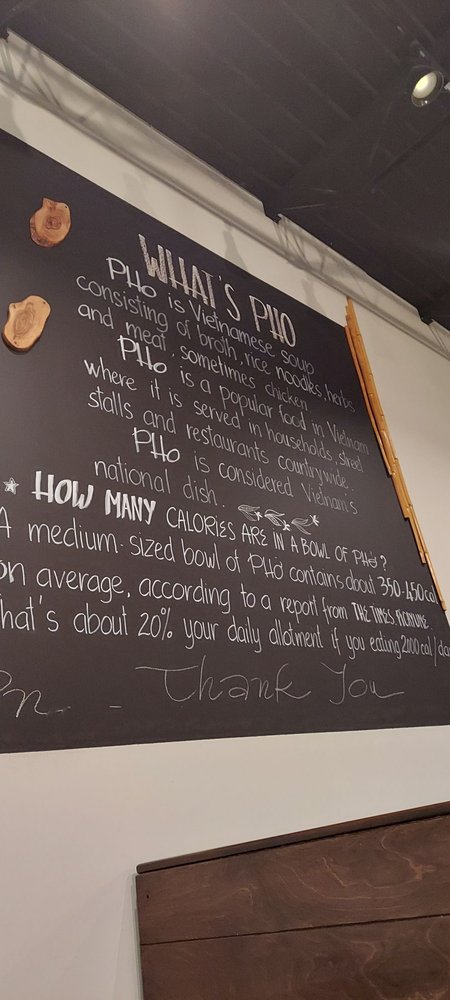 WHAT'S PHO
PHO is Vietnamese soup
consisting of broth, rice noodles, herbs
and meat, sometimes chicken
PHO is a popular food in Vietnam
where it is served in households, street
stalls and restaurants countrywide.
PHO is considered Vietnam's
national dish.
HOW MANY CALORIES ARE IN A BOWL OF PHỞ?
A medium-sized bowl of PHỞ contains about 350-450cal
on average, according to a report from THE TIMES
that's about 20% your daily allotment if you eating 2000 cal/day
Thank You